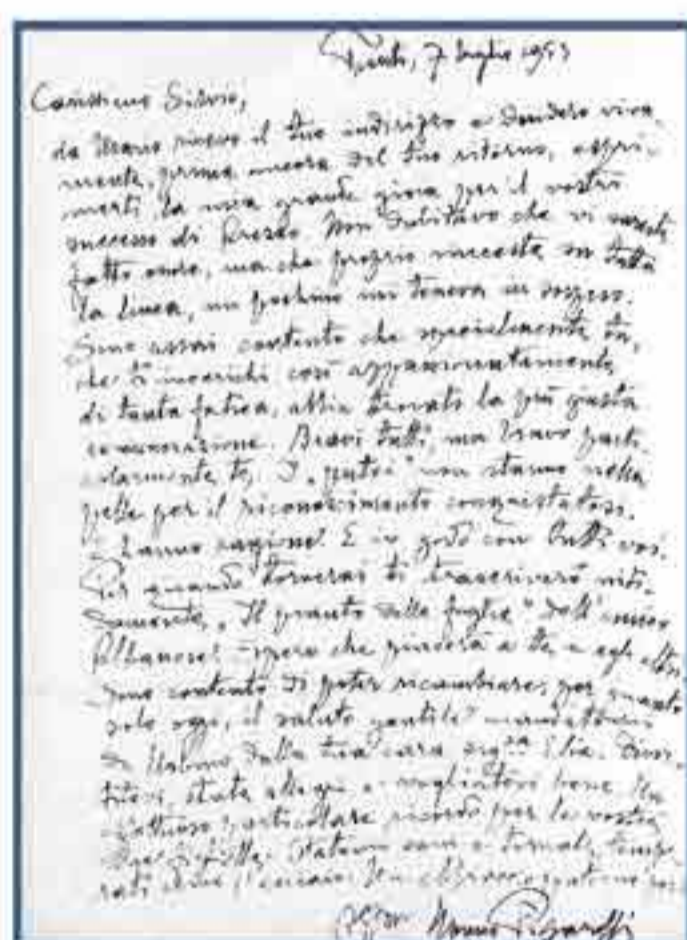 7 luglio 1953
Carissimo Silvio,
da Urano ricevo il tuo indirizzo e desidero viva-
mente, prima ancora del tuo ritorno, espri-
merti la mia grande gioia per il vostro
successo di Arezzo. Non dubitavo che vi sareste
fatto onore, ma che proprio riusciste su tutta
la linea, un pochino mi teneva in sospeso.
Sono assai contento che specialmente tu,
che ti incarichi così appassionatamente
di tanta fatica, abbia trovato la più giusta
Bravi tutti, ma bravo parti-
colarmente te. I „putei" non stanno nella
pelle per il riconoscimento conquistatosi.
Hanno ragione! E io godo con tutti voi.
Per quando tornerai ti trascriverò niti-
damente „Il pianto delle foglie" dell'amico
Albanese: spero che piacerà a te e agli altri.
Sono contento di poter ricambiare, per quanto
solo oggi, il saluto gentile mandatomi
da Urbino dalla tua cara sig.ra Elia. Diver-
titevi, state allegri e vogliatevi bene. Un
affettuoso particolare ricordo per la vostra
State sani e tornate
Un abbraccio